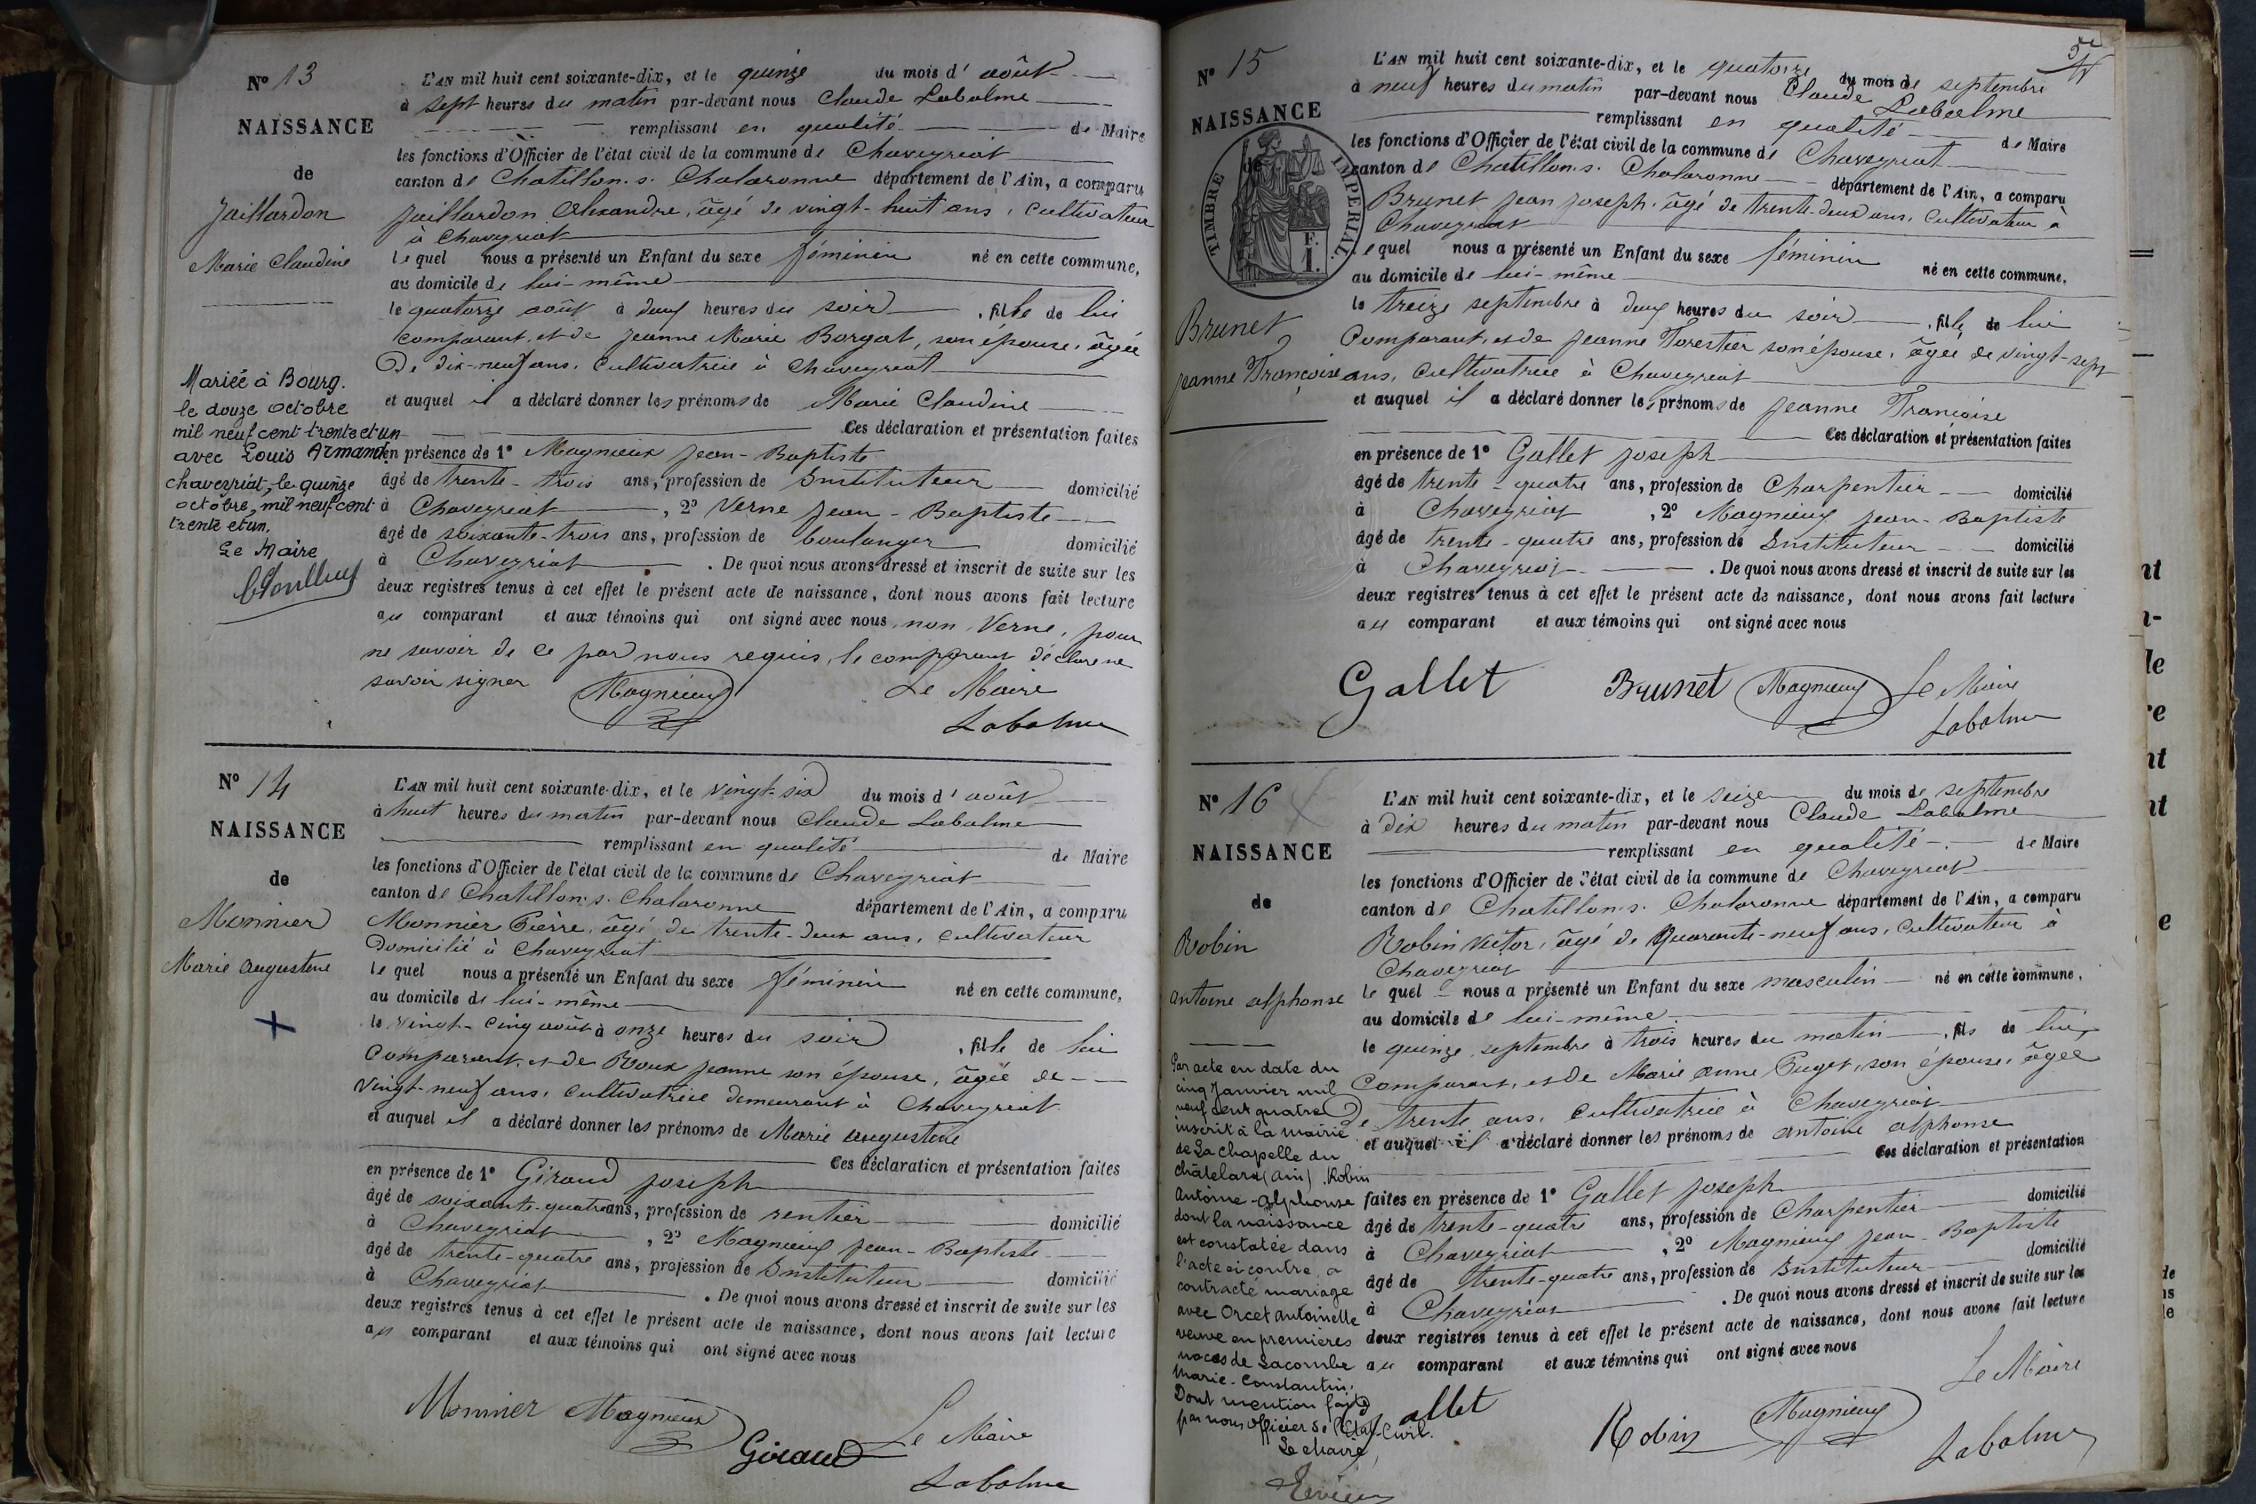 N° 13
NAISSANCE
de
Jaillardon
Marie Claudine
Mariée à Bourg.
le douze octobre
mil neuf cent trente et un
avec Louis Armand.
chaveyriat, le quinze
octobre, mil neuf cent
trente et un.
Le Maire
L'AN mil huit cent soixante-dix, et le quinze du mois d'août
à sept heures du matin par-devant nous Claude Labalme
remplissant en qualité de Maire
les fonctions d'Officier de l'état civil de la commune de Chaveyriat
canton de Chatillon s. Chalaronne département de l'Ain, a comparu
Jaillardon Alexandre, âgé de vingt-huit ans, cultivateur
à Chaveyriat
lequel nous a présenté un Enfant du sexe féminin né en cette commune,
au domicile de lui-même
le quatorze août à deux heures du soir, fille de lui
comparant, et de Jeanne Marie Borgat, son épouse, âgée
De dix-neuf ans, cultivatrice à Chaveyriat
et auquel il a déclaré donner les prénoms de Marie Claudine
Ces déclaration et présentation faites
en présence de 1° Magnieux Jean-Baptiste
âgé de trente-trois ans, profession de Instituteur domicilié
à Chaveyriat, 2° Verne Jean-Baptiste
âgé de soixante-trois ans, profession de boulanger domicilié
à Chaveyriat. De quoi nous avons dressé et inscrit de suite sur les
deux registres tenus à cet effet le présent acte de naissance, dont nous avons fait lecture
au comparant et aux témoins qui ont signé avec nous, non Verne, pour
ne savoir de ce par nous requis, le comparant déclare ne
savoir signer
Magnieux Le Maire
Labalme
N° 14
NAISSANCE
de
Monnier
Marie Augustine
L'AN mil huit cent soixante-dix, et le vingt-six du mois d'août
à huit heures du matin par-devant nous Claude Labalme
remplissant en qualité de Maire
les fonctions d'Officier de l'état civil de la commune de Chaveyriat
canton de Chatillon s. Chalaronne département de l'Ain, a comparu
Monnier Pierre, âgé de trente-deux ans, cultivateur
Domicilié à Chaveyriat
lequel nous a présenté un Enfant du sexe féminin né en cette commune,
au domicile de lui-même
le vingt-cinq août à onze heures du soir, fille de lui
Comparant, et de Roux Jeanne son épouse, âgée de
vingt-neuf ans, cultivatrice demeurant à Chaveyriat
et auquel il a déclaré donner les prénoms de Marie Augustine
Ces déclaration et présentation faites
en présence de 1° Giraud Joseph
âgé de soixante-quatre ans, profession de rentier domicilié
à Chaveyriat, 2° Magnieux Jean-Baptiste
âgé de trente-quatre ans, profession de Instituteur domicilié
à Chaveyriat. De quoi nous avons dressé et inscrit de suite sur les
deux registres tenus à cet effet le présent acte de naissance, dont nous avons fait lecture
au comparant et aux témoins qui ont signé avec nous
Monnier Magnieux Giraud Le Maire
Labalme
N° 15
NAISSANCE
de
TIMBRE IMPERIAL.
F.
1.
Brunet
Jeanne Françoise
L'AN mil huit cent soixante-dix, et le quatorze du mois de septembre
à neuf heures du matin par-devant nous Claude Labalme
remplissant en qualité de Maire
les fonctions d'Officier de l'état civil de la commune de Chaveyriat
canton de Chatillon s. Chalaronne département de l'Ain, a comparu
Brunet Jean Joseph, âgé de trente-deux ans, cultivateur à
Chaveyriat
lequel nous a présenté un Enfant du sexe féminin né en cette commune,
au domicile de lui-même
le treize septembre à deux heures du soir, fille de lui
Comparant, et de Jeanne Forestier son épouse, âgée de vingt-sept
ans, cultivatrice à Chaveyriat
et auquel il a déclaré donner les prénoms de Jeanne Francoise
Ces déclaration et présentation faites
en présence de 1° Gallet Joseph
âgé de trente-quatre ans, profession de Charpentier domicilié
à Chaveyriat, 2° Magnieux Jean-Baptiste
âgé de trente-quatre ans, profession de Instituteur domicilié
à Chaveyriat. De quoi nous avons dressé et inscrit de suite sur les
deux registres tenus à cet effet le présent acte de naissance, dont nous avons fait lecture
au comparant et aux témoins qui ont signé avec nous
Gallet Brunet Magnieux Le Maire
Labalme
N° 16
NAISSANCE
de
Robin
Antoine Alphonse
Par acte en date du
cinq Janvier mil
neuf cent quatre
inscrit à la mairie
de La chapelle du
châtelard (Ain) Robin
Antoine-Alphonse
dont la naissance
est constatée dans
l'acte ci contre, a
contracté mariage
avec Orcet Antoinette
veuve en premières
noces de Lacombe
Marie-Constantin.
Dont mention faite
par nous Officier de l'Etat-Civil.
Le Maire,
L'AN mil huit cent soixante-dix, et le seize du mois de septembre
à dix heures du matin par-devant nous Claude Labalme
remplissant en qualité de Maire
les fonctions d'Officier de l'état civil de la commune de Chaveyriat
canton de Chatillon s. Chalaronne département de l'Ain, a comparu
Robin Victor, âgé de Quarante-neuf ans, cultivateur à
Chaveyriat
lequel nous a présenté un Enfant du sexe masculin né en cette commune,
au domicile de lui-même
le quinze septembre à trois heures du matin, fils de lui
Comparant, et de Marie Anne Puget, son épouse, âgée
De trente ans, cultivatrice à Chaveyriat
et auquel il a déclaré donner les prénoms de Antoine Alphonse
Ces déclaration et présentation
faites en présence de 1° Gallet Joseph
âgé de trente-quatre ans, profession de Charpentier domicilié
à Chaveyriat, 2° Magnieux Jean-Baptiste
âgé de trente-quatre ans, profession de Instituteur domicilié
à Chaveyriat. De quoi nous avons dressé et inscrit de suite sur les
deux registres tenus à cet effet le présent acte de naissance, dont nous avons fait lecture
au comparant et aux témoins qui ont signé avec nous
Gallet Robin Magnieux Le Maire
Labalme